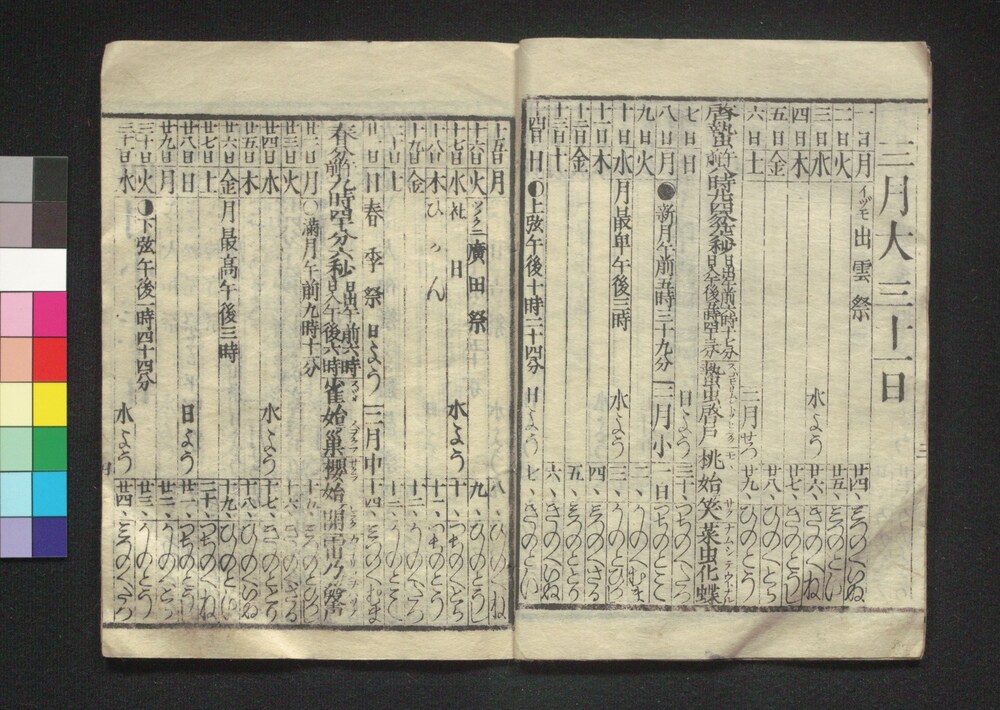 三月大三十一日
一日月 イヅモ出雲祭 廿四、みつのえいぬ
二日火 廿五、みつのとい
三日水 水よう 廿六、きのえね
四日木 廿七、きのとうし
五日金 廿八、ひのえとら
六日土 二月せつ 廿九、ひのとう
啓蟄 日出午前六時十七分 日入午後五時四十三分 蟄虫啓戸 桃始笑 菜虫化蝶
七日日 日よう 三十、つちのえたつ
八日月 ●新月午前五時三十九分 二月小 一日つちのとみ
九日火 二、かのえむま
十日水 月最卑午後三時 水よう 三、かのとひつし
十一日木 四、みつのえさる
十二日金 五、みつのととり
十三日土 六、きのえいぬ
十四日日 ◐上弦午後十時二十四分 日よう 七、きのとい
十五日月 八、ひのえね
十六日火 廣田祭 九、ひのとうし
十七日水 社日 水よう 十、つちのえとら
十八日木 ひがん 十一、つちのとう
十九日金 十二、かのえたつ
二十日土 十三、かのとみ
廿一日日 春季祭 日よう 二月中 十四、みつのえむま
春分 日出午前六時 日入午後六時 雀始巣 櫻始開 雷乃發声
廿二日月 ○満月午前九時十二分 十五、みつのとひつし
廿三日火 十六、きのえさる
廿四日水 水よう 十七、きのととり
廿五日木 十八、ひのえいぬ
廿六日金 月最高午後三時 十九、ひのとい
廿七日土 二十、つちのえね
廿八日日 日よう 廿一、つちのとうし
廿九日月 廿二、かのえとら
三十日火 ◑下弦午後一時四十四分 廿三、かのとう
三十一日水 水よう 廿四、みつのえたつ